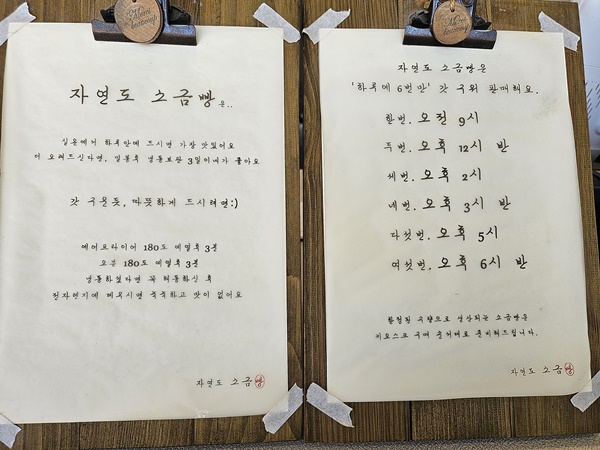 Merci beaucoup
자연도 소금빵은..
실온에서 하루안에 드시면 가장 맛있어요
더 오래드신다면, 밀봉후 냉동보관 3일이내가 좋아요
갓 구운듯, 따뜻하게 드시려면:)
에어프라이어 180도 예열후 3분
오븐 180도 예열후 3분
냉동하셨다면 꼭 해동하신 후
전자렌지에 데우시면 축축하고 맛이 없어요
자연도 소금빵
Merci beaucoup
자연도 소금빵은
'하루에 6번만' 갓 구워 판매해요.
한번. 오전 9시
두번. 오후 12시 반
세번. 오후 2시
네번. 오후 3시 반
다섯번. 오후 5시
여섯번. 오후 6시 반
한정된 수량으로 생산되는 소금빵은
키오스크 구매 순서대로 준비해드립니다.
자연도 소금빵